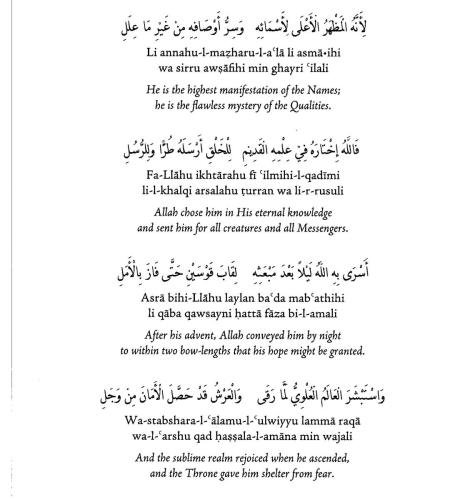 لِأَنَّهُ المَظْهَرُ الأَعْلَى لِأَسْمَائِهِ وَسِرُّ أَوْصَافِهِ مِنْ غَيْرِ مَا عِلَلِ
Li annahu-l-maẓharu-l-aʿlā li asmā•ihi
wa sirru awṣāfihi min ghayri ʿilali
He is the highest manifestation of the Names;
he is the flawless mystery of the Qualities.
فَاللَّهُ إِخْتَارَهُ فِيْ عِلْمِهِ القَدِيمِ لِلْخَلْقِ أَرْسَلَهُ طُرًّا وَلِلرُّسُلِ
Fa-Llāhu ikhtārahu fī ʿilmihi-l-qadīmi
li-l-khalqi arsalahu ṭurran wa li-r-rusuli
Allah chose him in His eternal knowledge
and sent him for all creatures and all Messengers.
أَسْرَى بِهِ اللَّهُ لَيْلاً بَعْدَ مَبْعَثِهِ لِقَابَ قَوْسَيْنِ حَتَّى فَازَ بِالأَمَلِ
Asrā bihi-Llāhu laylan baʿda mabʿathihi
li qāba qawsayni ḥattā fāza bi-l-amali
After his advent, Allah conveyed him by night
to within two bow-lengths that his hope might be granted.
وَاسْتَبْشَرَ العَالَمُ العُلْوِيُّ لَمَّا رَقَى وَالْعَرْشُ قَدْ حَصَّلَ الأَمَانَ مِنْ وَجَلِ
Wa-stabshara-l-ʿālamu-l-ʿulwiyyu lammā raqā
wa-l-ʿarshu qad ḥaṣṣala-l-amāna min wajali
And the sublime realm rejoiced when he ascended,
and the Throne gave him shelter from fear.